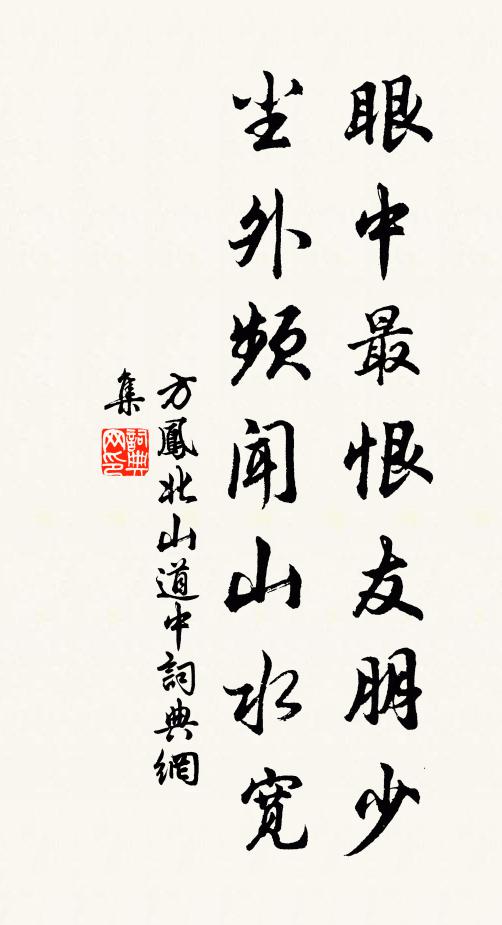 眼中最恨友朋少
尘外频闻山水宽
方鳳北山道中詞典網
集
詞典
网印